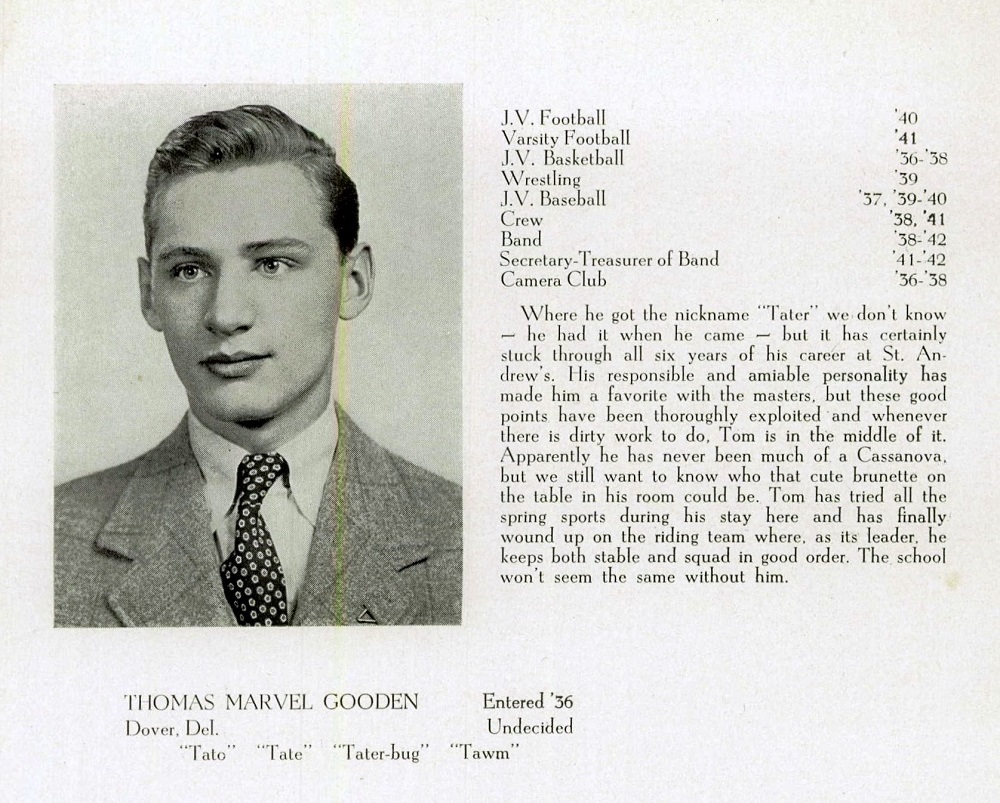 J.V. Football '40
Varsity Football '41
J.V. Basketball '36-'38
Wrestling '39
J.V. Baseball '37, '39-'40
Crew '38, '41
Band '38-'42
Secretary-Treasurer of Band '41-'42
Camera Club '36-'38
Where he got the nickname "Tater" we don't know
— he had it when he came — but it has certainly
stuck through all six years of his career at St. An-
drew's. His responsible and amiable personality has
made him a favorite with the masters, but these good
points have been thoroughly exploited and whenever
there is dirty work to do, Tom is in the middle of it.
Apparently he has never been much of a Cassanova,
but we still want to know who that cute brunette on
the table in his room could be. Tom has tried all the
spring sports during his stay here and has finally
wound up on the riding team where, as its leader, he
keeps both stable and squad in good order. The school
won't seem the same without him.
THOMAS MARVEL GOODEN Entered '36
Dover, Del. Undecided
"Tato" "Tate" "Tater-bug" "Tawm"